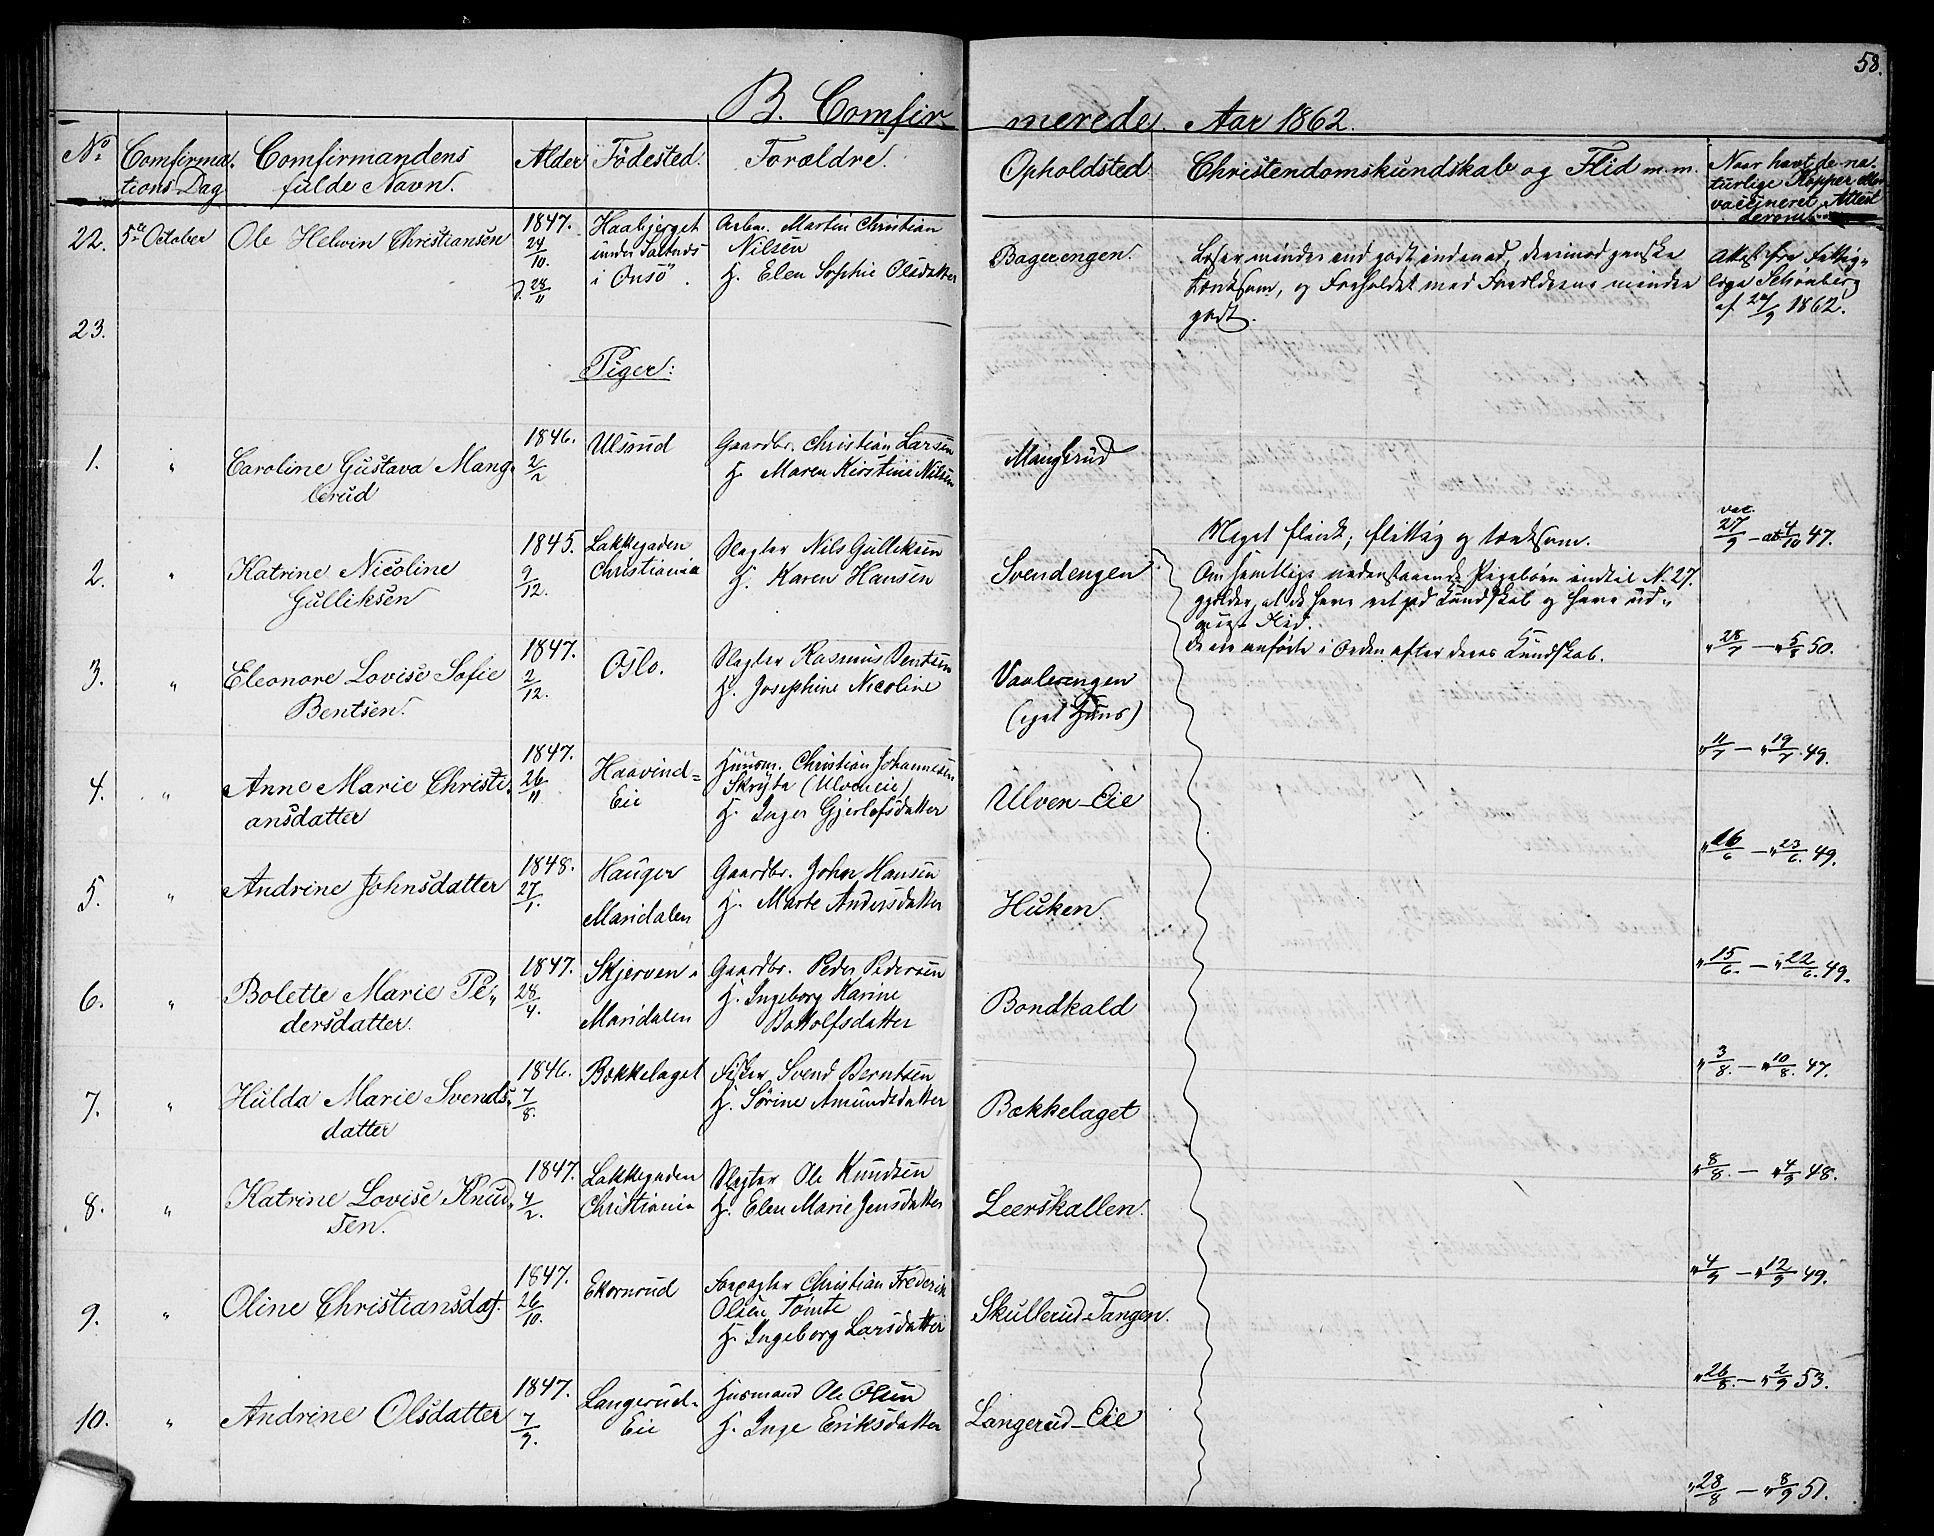 58.
B. Comfirmerede. Aar 1862.
No. Comfirmations Dag. Comfirmandens fulde Navn. Alder Födested. Forældre. Opholdsted Christendomskundskab og Flid m.m. Naar havt de naturlige Kopper eller vaccineret, Attest derom
22. 5te October Ole Helvin Christiansen 1847. 24/10. d. 28/11 Haabjerget under Saltnæs i Onsö. Arbm. Martin Christian Nilsen H. Elen Sophie Olsdatter Bagerengen. Læser mindre end godt indenad, derimod ganske tænksom, og Forholdet med Forældrene mindre godt. Attest fra Fattiglæge Schönberg af 24/9 1862.
23.
Piger:
1. " Caroline Gustava Manglerud 1846. 2/2 Ulsrud Gaardbr. Christian Larsen H. Maren Kirstine Nilsen Manglerud Meget flink, flittig og tænksom. vac. 27/9 – at 4/10 47.
2. " Katrine Nicoline Gulliksen 1845. 9/12. Lakkegaden Christiania Slagter Nils Gulliksen H. Karen Hansen Svendengen Om samtlige nedenstaaende Pigebörn indtil N. 27. gjælder, at de have ret god Kundskab og have udviist Flid. De ere anförte i Orden efter deres Kundskab. " 28/7 – " 5/8 50.
3. " Eleonore Lovise Sofie Bentsen. 1847. 2/12. Oslo. Slagter Rasmus Bentsen H. Josephine Nicoline Vaalerengen (eget Huus) " 11/7 – " 19/7. 49.
4. " Anne Marie Christiansdatter 1847. 26/11 Haavind=Eie Huusm. Christian Johannesen Skryta (Ulveneie) H. Inger Gjerlofsdatter Ulven-Eie " 16/6 – " 23/6. 49.
5. " Andrine Johnsdatter 1848. 27/1. Hauger Maridalen Gaardbr. John Hansen H. Marte Andersdatter Huken. " 15/6. – " 22/6. 49.
6. " Bolette Marie Pedersdatter. 1847. 28/4. Skjerven i Maridalen Gaardbr. Peder Pedersen H. Ingeborg Karine Bottolfsdatter Bondkald " 3/8. – " 10/8. 47.
7. " Hulda Marie Svendsdatter 1846. 7/8. Bækkelaget Fisker Svend Berntsen H. Sörine Amundsdatter Bækkelaget " 8/8. – " 4/9 48.
8. " Katrine Lovise Knudsen. 1847. 4/2. Lakkegaden Christiania Slagter Ole Knudsen H. Elen Marie Jensdatter Leerskallen. " 4/9 – " 12/9 49.
9. " Oline Christiansdat. 1847. 26/10. Ekornrud Forpagter Christian Frederik Olsen Tömte H. Ingeborg Larsdatter Skullerud-Tangen. " 26/8. – " 2/9 53.
10. " Andrine Olsdatter 1847. 7/9. Langerud=Eie Husmand Ole Olsen H. Inge Eriksdatter Langerud-Eie " 28/8 – " 8/9 51.